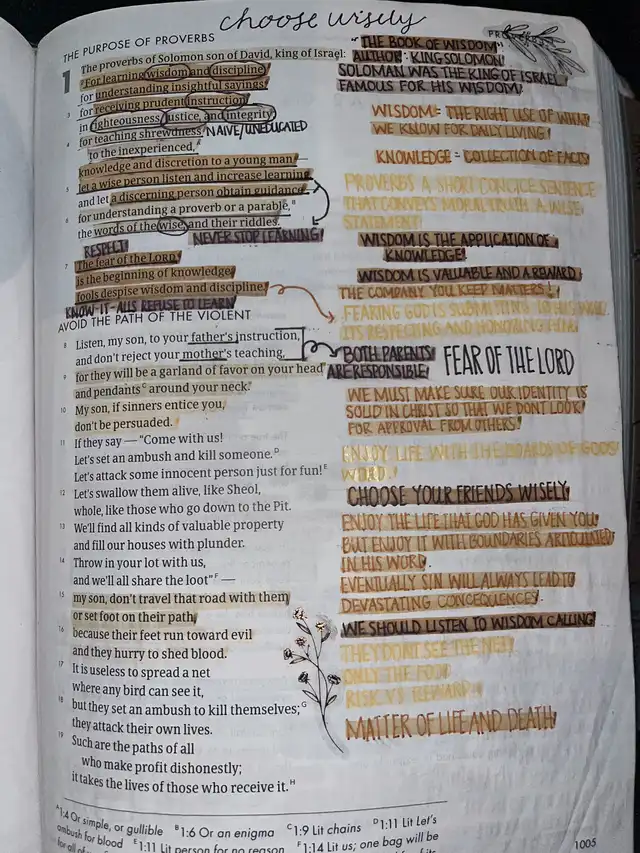 choose wisely
THE PURPOSE OF PROVERBS
1 The proverbs of Solomon son of David, king of Israel:
2 For learning wisdom and discipline;
for understanding insightful sayings;
3 for receiving prudent instruction
in righteousness, justice, and integrity;
4 for teaching shrewdness NAIVE/UNEDUCATED
to the inexperienced,A
knowledge and discretion to a young man —
5 let a wise person listen and increase learning
and let a discerning person obtain guidance —
6 for understanding a proverb or a parable,B
the words of the wise, and their riddles.
RESPECT! NEVER STOP LEARNING!
7 The fear of the LORD
is the beginning of knowledge;
fools despise wisdom and discipline.
KNOW-IT-ALLS REFUSE TO LEARN
AVOID THE PATH OF THE VIOLENT
8 Listen, my son, to your father's instruction,
and don't reject your mother's teaching,
9 for they will be a garland of favor on your head
and pendantsC around your neck.
10 My son, if sinners entice you,
don't be persuaded.
11 If they say — "Come with us!
Let's set an ambush and kill someone.D
Let's attack some innocent person just for fun!E
12 Let's swallow them alive, like Sheol,
whole, like those who go down to the Pit.
13 We'll find all kinds of valuable property
and fill our houses with plunder.
14 Throw in your lot with us,
and we'll all share the loot"F —
15 my son, don't travel that road with them
or set foot on their path,
16 because their feet run toward evil
and they hurry to shed blood.
17 It is useless to spread a net
where any bird can see it,
18 but they set an ambush to kill themselves;G
they attack their own lives.
19 Such are the paths of all
who make profit dishonestly;
it takes the lives of those who receive it.H
"THE BOOK OF WISDOM"
AUTHOR: KING SOLOMON!
SOLOMAN WAS THE KING OF ISRAEL
FAMOUS FOR HIS WISDOM!
WISDOM = THE RIGHT USE OF WHAT
WE KNOW FOR DAILY LIVING!
KNOWLEDGE = COLLECTION OF FACTS
PROVERBS A SHORT CONCICE SENTENCE
THAT CONVEYS MORAL TRUTH. A WISE
STATEMENT!
WISDOM IS THE APPLICATION OF
KNOWLEDGE!
WISDOM IS VALUABLE AND A REWARD
THE COMPANY YOU KEEP MATTERS!!
FEARING GOD IS SUBMITTING TO HIS WILL
ITS RESPECTING AND HONORING HIM
BOTH PARENTS
ARE RESPONSIBLE!
FEAR OF THE LORD
WE MUST MAKE SURE OUR IDENTITY IS
SOLID IN CHRIST SO THAT WE DONT LOOK
FOR APPROVAL FROM OTHERS!
ENJOY LIFE WITH THE BOARDS OF GODS
WORD!
CHOOSE YOUR FRIENDS WISELY!
ENJOY THE LIFE THAT GOD HAS GIVEN YOU
BUT ENJOY IT WITH BOUNDARIES ARTICULATED
IN HIS WORD.
EVENTUALLY SIN WILL ALWAYS LEAD TO
DEVASTATING CONCEQUENCES!
WE SHOULD LISTEN TO WISDOM CALLING!
THEY DONT SEE THE NET!
ONLY THE FOOD
RISK VS REWARD!
MATTER OF LIFE AND DEATH!
A 1:4 Or simple, or gullible B 1:6 Or an enigma C 1:9 Lit chains D 1:11 Lit Let's
ambush for blood E 1:11 Lit person for no reason F 1:14 Lit us; one bag will be
for all of
1005